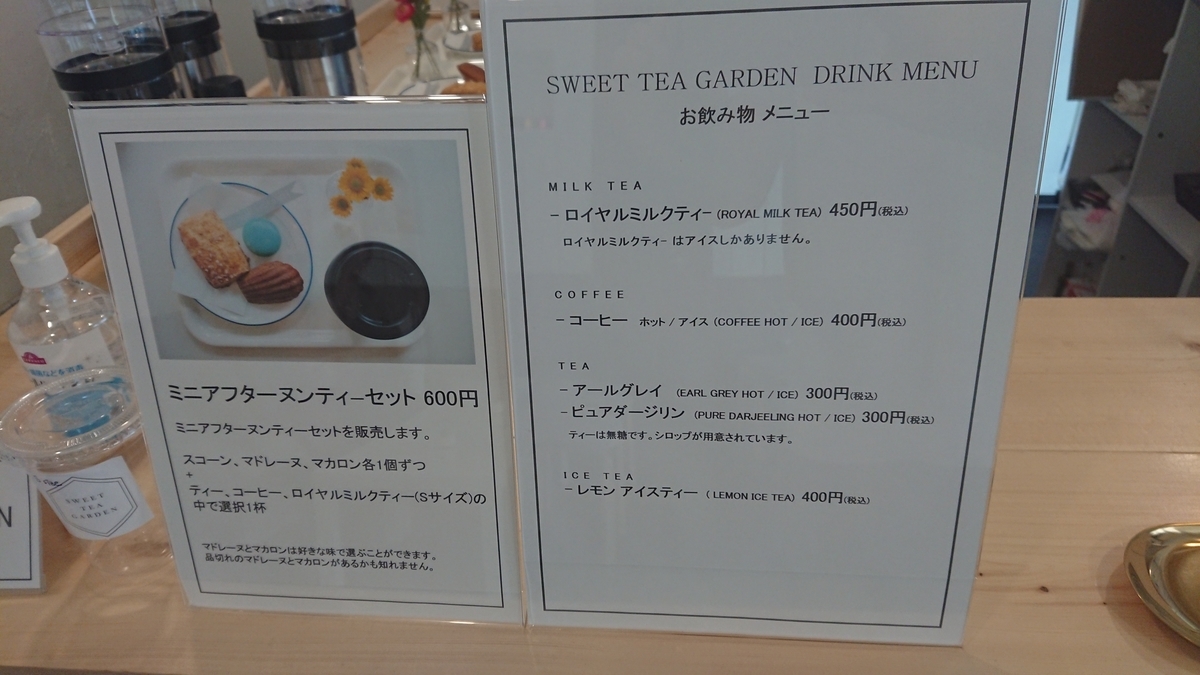 ミニアフターヌンティーセット 600円
ミニアフターヌンティーセットを販売します。
スコーン、マドレーヌ、マカロン各1個ずつ
+
ティー、コーヒー、ロイヤルミルクティー(Sサイズ)の
中で選択1杯
マドレーヌとマカロンは好きな味で選ぶことができます。
品切れのマドレーヌとマカロンがあるかも知れません。
SWEET TEA GARDEN DRINK MENU
お飲み物 メニュー
MILK TEA
- ロイヤルミルクティー (ROYAL MILK TEA) 450円(税込)
ロイヤルミルクティー はアイスしかありません。
COFFEE
- コーヒー ホット / アイス (COFFEE HOT / ICE) 400円(税込)
TEA
- アールグレイ (EARL GREY HOT / ICE) 300円(税込)
- ピュアダージリン (PURE DARJEELING HOT / ICE) 300円(税込)
ティーは無糖です。シロップが用意されています。
ICE TEA
- レモン アイスティー ( LEMON ICE TEA) 400円(税込)
SWEET
TEA
GARDEN
N